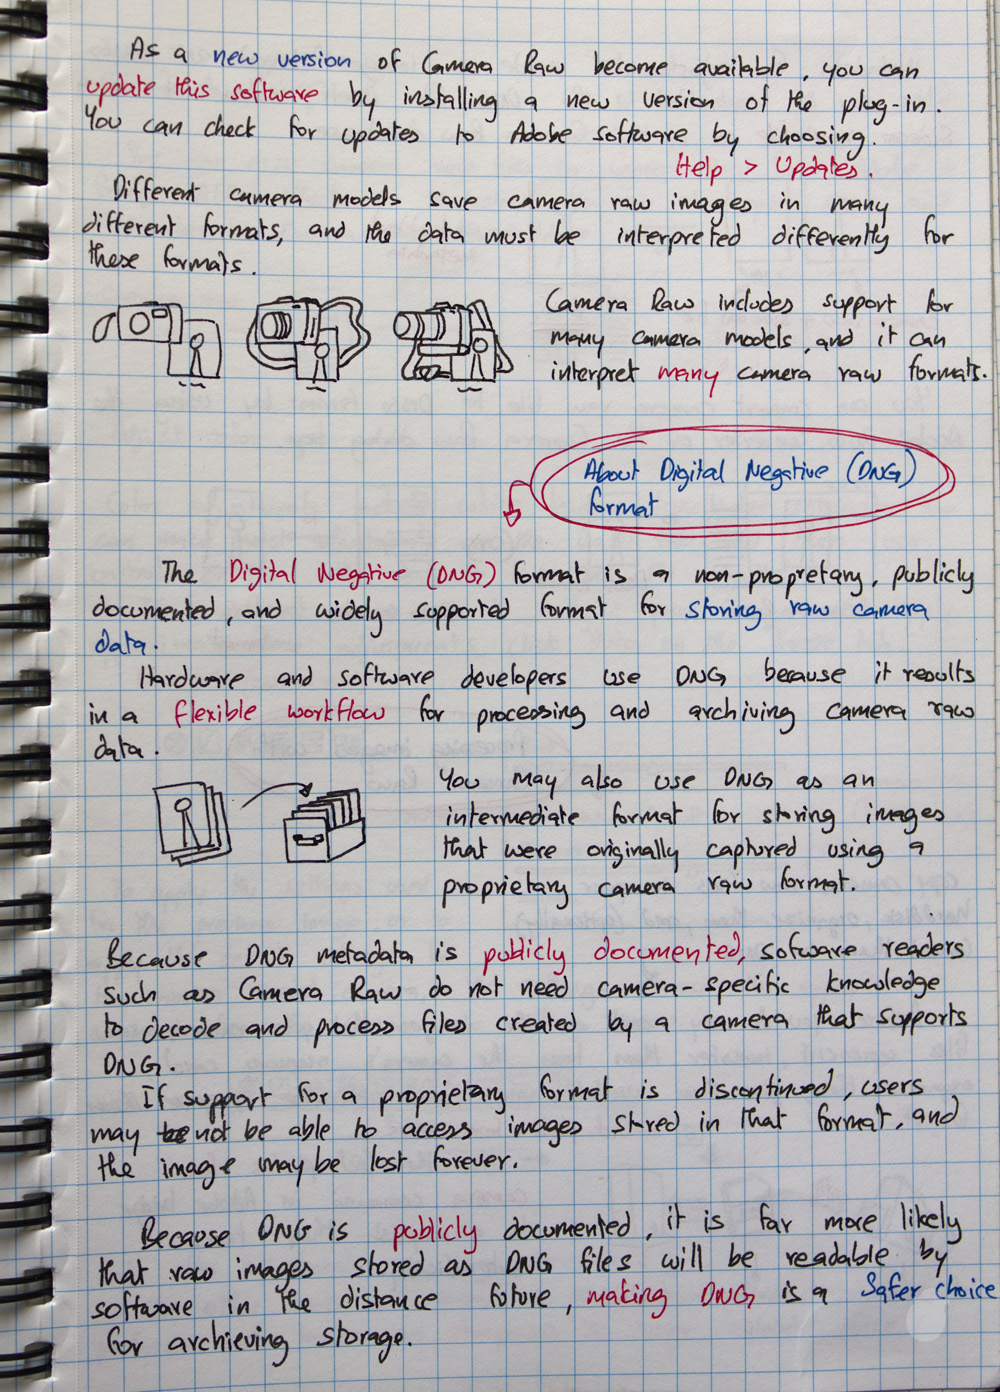 As a new version of Camera Raw become available, you can
update this software by installing a new version of the plug-in.
You can check for updates to Adobe software by choosing.
Help > Updates.
Different camera models save camera raw images in many
different formats, and the data must be interpreted differently for
these formats.
Camera Raw includes support for
many camera models, and it can
interpret many camera raw formats.
About Digital Negative (DNG)
format
The Digital Negative (DNG) format is a non-propretary, publicly
documented, and widely supported format for storing raw camera
data.
Hardware and software developers use DNG because it results
in a flexible workflow for processing and archiving camera raw
data.
You may also use DNG as an
intermediate format for storing images
that were originally captured using a
proprietary camera raw format.
Because DNG metadata is publicly documented, sofware readers
such as Camera Raw do not need camera-specific knowledge
to decode and process files created by a camera that supports
DNG.
If support for a proprietary format is discontinued, users
may be not be able to access images stored in that format, and
the image may be lost forever.
Because DNG is publicly documented, it is far more likely
that raw images stored as DNG files will be readable by
software in the distance future, making DNG is a Safer choice
for archieving storage.